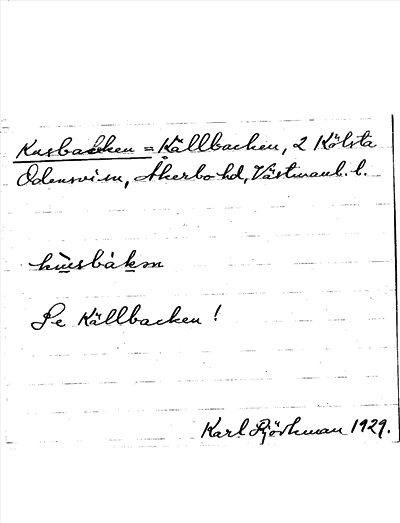 Kusbacken = Källbacken, 2 Kölsta
Odensvi sn, Åkerbo hd, Västmanl. l.
Se Källbacken!
Karl Björkman 1929.